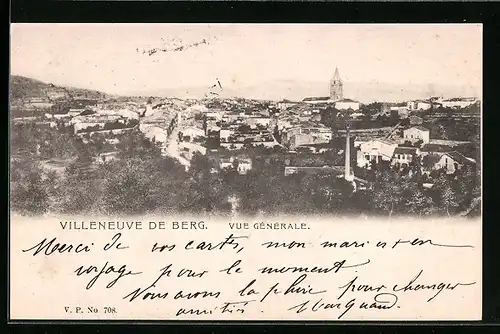 VILLENEUVE DE BERG. VUE GÉNÉRALE.
Merci de vos cartes, mon mari est en
voyage pour le moment
Nous avons la pluie pour changer
amitiés.
V. P. No 708.